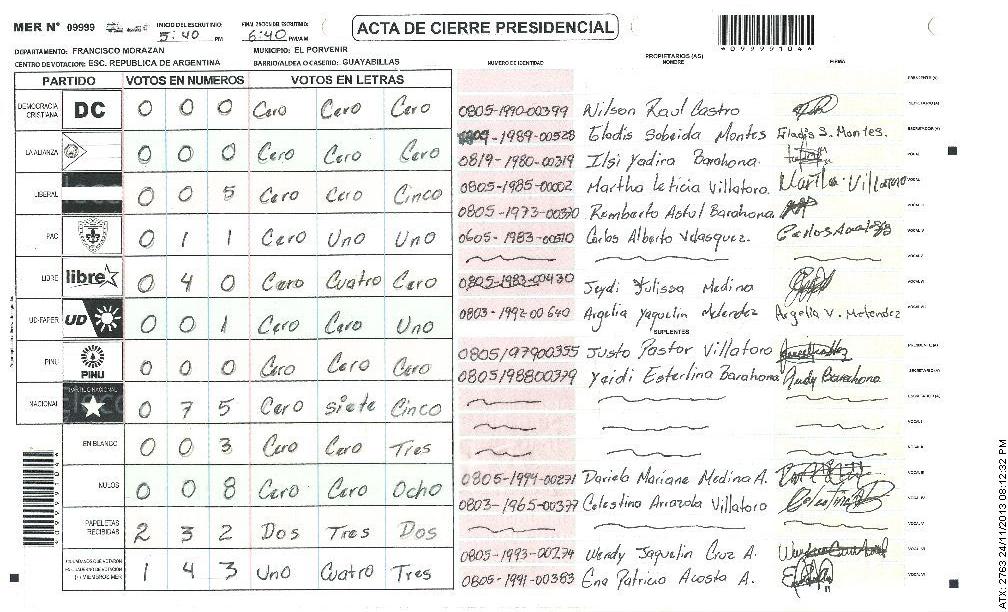 MER N° 09999
INICIO DEL ESCRUTINIO: 5:40 PM
FINALIZACION DEL ESCRUTINIO: 6:40 PM/AM
ACTA DE CIERRE PRESIDENCIAL
*09999104*
DEPARTAMENTO: FRANCISCO MORAZAN
MUNICIPIO: EL PORVENIR
CENTRO DE VOTACION: ESC. REPUBLICA DE ARGENTINA
BARRIO/ALDEA O CASERIO: GUAYABILLAS
PARTIDO VOTOS EN NUMEROS VOTOS EN LETRAS
DEMOCRACIA CRISTIANA DC 0 0 0 Cero Cero Cero
LA ALIANZA 0 0 0 Cero Cero Cero
LIBERAL 0 0 5 Cero Cero Cinco
PAC 0 1 1 Cero Uno Uno
LIBRE libre 0 4 0 Cero Cuatro Cero
UD-FAPER UD 0 0 1 Cero Cero Uno
PINU PINU 0 0 0 Cero Cero Cero
NACIONAL 0 7 5 Cero siete Cinco
EN BLANCO 0 0 3 Cero Cero Tres
NULOS 0 0 8 Cero Cero Ocho
PAPELETAS RECIBIDAS 2 3 2 Dos Tres Dos
CIUDADANOS QUE VOTARON (+) MIEMBROS MER 1 4 3 Uno Cuatro Tres
*09999104*
NUMERO DE IDENTIDAD PROPIETARIOS (AS) NOMBRE FIRMA
PRESIDENTE (A)
0805-1990-00399 Wilson Raul Castro SECRETARIO (A)
-1989-00528 Eladis Sobeida Montes Eladis S. Montes. ESCRUTADOR (A)
0819-1980-00319 Ilsi Yadira Barahona. VOCAL I
0805-1985-00002 Martha Leticia Villatoro. Martha Villatoro
0805-1973-00370 Romberto Astul Barahona
0605-1983-00510 Carlos Alberto Velasquez.
0805-1983-00430 Jeydi Julissa Medina
0803-1992-00640 Argelia Yaquelin Melendez Argelia V. Melendez
SUPLENTES
0805197900355 Justo Pastor Villatoro PRESIDENTE (A)
0805198800379 Yeidi Esterlina Barahona Barahona SECRETARIO (A)
ESCRUTADOR (A)
0805-1994-00271 Dariela Mariane Medina A.
0803-1965-00377 Celestino Arrazola Villatoro
0805-1993-00274 Wendy Jaquelin Cruz A.
0805-1991-00383 Ena Patricia Acosta A.
ATX: 2763 24/11/2013 08:12:32 PM